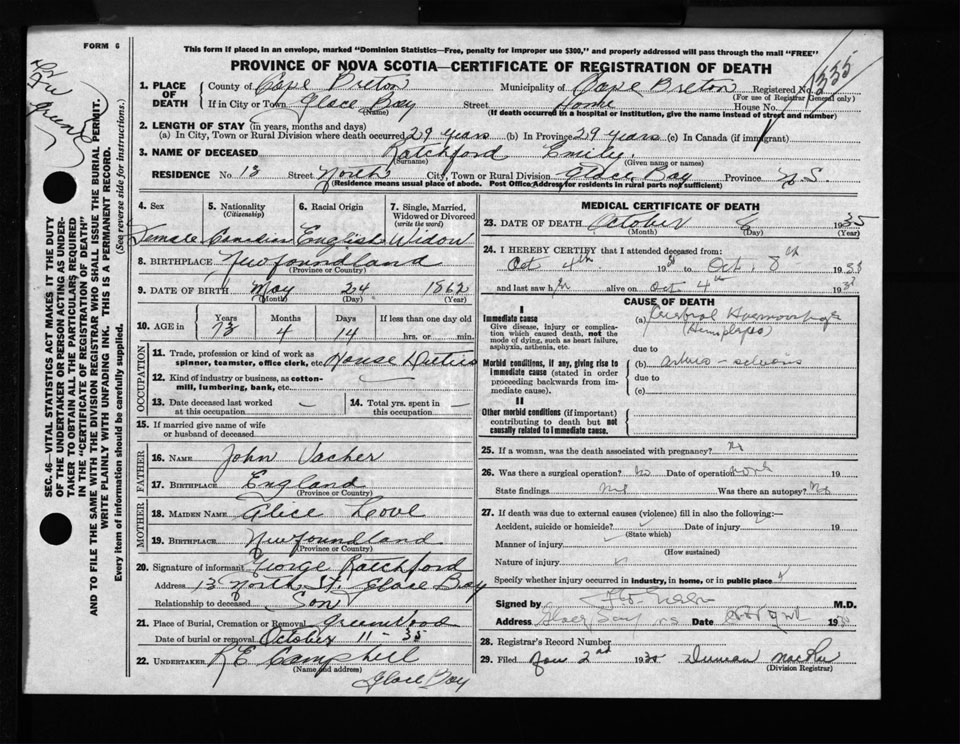 FORM 6
This form if placed in an envelope, marked "Dominion Statistics—Free, penalty for improper use $300," and properly addressed will pass through the mail "FREE"
PROVINCE OF NOVA SCOTIA—CERTIFICATE OF REGISTRATION OF DEATH
1. PLACE OF DEATH
County of Cape Breton Municipality of Cape Breton Registered No.
(For use of Registrar General only)
If in City or Town Glace Bay Street Home House No.
(Name) (If death occurred in a hospital or institution, give the name instead of street and number)
2. LENGTH OF STAY (in years, months and days)
(a) In City, Town or Rural Division where death occurred 29 years (b) In Province 29 years (c) In Canada (if immigrant)
3. NAME OF DECEASED Ratchford Emily
(Surname) (Given name or names)
RESIDENCE No. 13 Street North City, Town or Rural Division Glace Bay Province N.S.
(Residence means usual place of abode. Post Office Address for residents in rural parts not sufficient)
4. Sex 5. Nationality 6. Racial Origin 7. Single, Married, Widowed or Divorced
(Citizenship) (write the word)
Female Canadian English Widow
8. BIRTHPLACE Newfoundland
(Province or Country)
9. DATE OF BIRTH May 24 1862
(Month) (Day) (Year)
10. AGE in Years Months Days If less than one day
73 4 14 hrs. or min.
OCCUPATION
11. Trade, profession or kind of work as spinner, teamster, office clerk, etc. House Duties
12. Kind of industry or business, as cotton-mill, lumbering, bank, etc.
13. Date deceased last worked at this occupation —
14. Total yrs. spent in this occupation —
15. If married give name of wife or husband of deceased
FATHER
16. NAME John Vacher
17. BIRTHPLACE England
(Province or Country)
MOTHER
18. MAIDEN NAME Alice Love
19. BIRTHPLACE Newfoundland
(Province or Country)
20. Signature of informant George Ratchford
Address 13 North St. Glace Bay
Relationship to deceased Son
21. Place of Burial, Cremation or Removal Greenwood
Date of burial or removal October 11 - 35
22. UNDERTAKER R E Campbell
(Name and address)
Glace Bay
MEDICAL CERTIFICATE OF DEATH
23. DATE OF DEATH October 8 1935
(Month) (Day) (Year)
24. I HEREBY CERTIFY that I attended deceased from:
Oct 4th 19 to Oct. 8th 193
and last saw h alive on Oct 4th 193
CAUSE OF DEATH
I
Immediate cause
Give disease, injury or complication which caused death, not the mode of dying, such as heart failure, asphyxia, asthenia, etc.
(a) Cerebral Haemorrhage
(Hemiplegia)
due to
Morbid conditions, if any, giving rise to immediate cause (stated in order proceeding backwards from immediate cause).
(b)
due to
(c)
II
Other morbid conditions (if important) contributing to death but not causally related to immediate cause.
25. If a woman, was the death associated with pregnancy? No
26. Was there a surgical operation? No Date of operation
State findings Was there an autopsy? No
27. If death was due to external causes (violence) fill in also the following:—
Accident, suicide or homicide? Date of injury 19
(State which)
Manner of injury
(How sustained)
Nature of injury
Specify whether injury occurred in industry, in home, or in public place
Signed by M.D.
Address Glace Bay NS Date 193
28. Registrar's Record Number
29. Filed 2nd 193 Duncan
(Division Registrar)
SEC. 46—VITAL STATISTICS ACT MAKES IT THE DUTY OF THE UNDERTAKER OR PERSON ACTING AS UNDERTAKER TO OBTAIN ALL THE PARTICULARS REQUIRED IN THE "CERTIFICATE OF REGISTRATION OF DEATH" AND TO FILE THE SAME WITH THE DIVISION REGISTRAR WHO SHALL ISSUE THE BURIAL PERMIT.
WRITE PLAINLY WITH UNFADING INK. THIS IS A PERMANENT RECORD.
Every item of information should be carefully supplied. (See reverse side for instructions.)